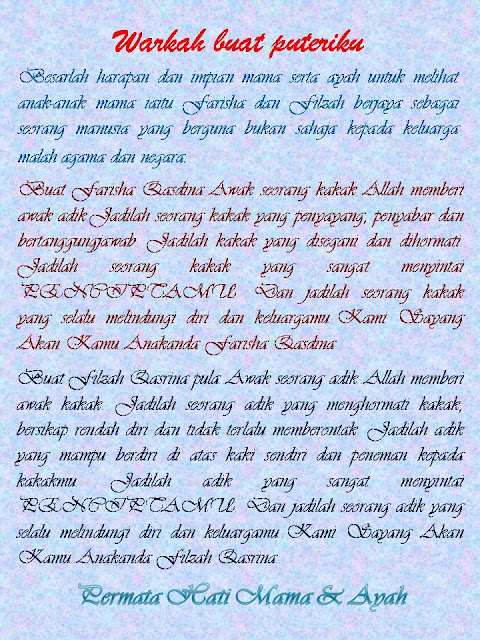 Warkah buat puteriku
Besarlah harapan dan impian mama serta ayah untuk melihat
anak-anak mama iaitu Farisha dan Filzah berjaya sebagai
seorang manusia yang berguna bukan sahaja kepada keluarga
malah agama dan negara.
Buat Farisha Qasdina Awak seorang kakak Allah memberi
awak adik Jadilah seorang kakak yang penyayang, penyabar dan
bertanggungjawab Jadilah kakak yang disegani dan dihormati
Jadilah seorang kakak yang sangat menyintai
PENCIPTAMU Dan jadilah seorang kakak
yang selalu melindungi diri dan keluargamu Kami Sayang
Akan Kamu Anakanda Farisha Qasdina
Buat Filzah Qasrina pula Awak seorang adik Allah memberi
awak kakak Jadilah seorang adik yang menghormati kakak,
bersikap rendah diri dan tidak terlalu memberontak Jadilah adik
yang mampu berdiri di atas kaki sendiri dan peneman kepada
kakakmu Jadilah adik yang sangat menyintai
PENCIPTAMU Dan jadilah seorang adik yang
selalu melindungi diri dan keluargamu Kami Sayang Akan
Kamu Anakanda Filzah Qasrina
Permata Hati Mama & Ayah